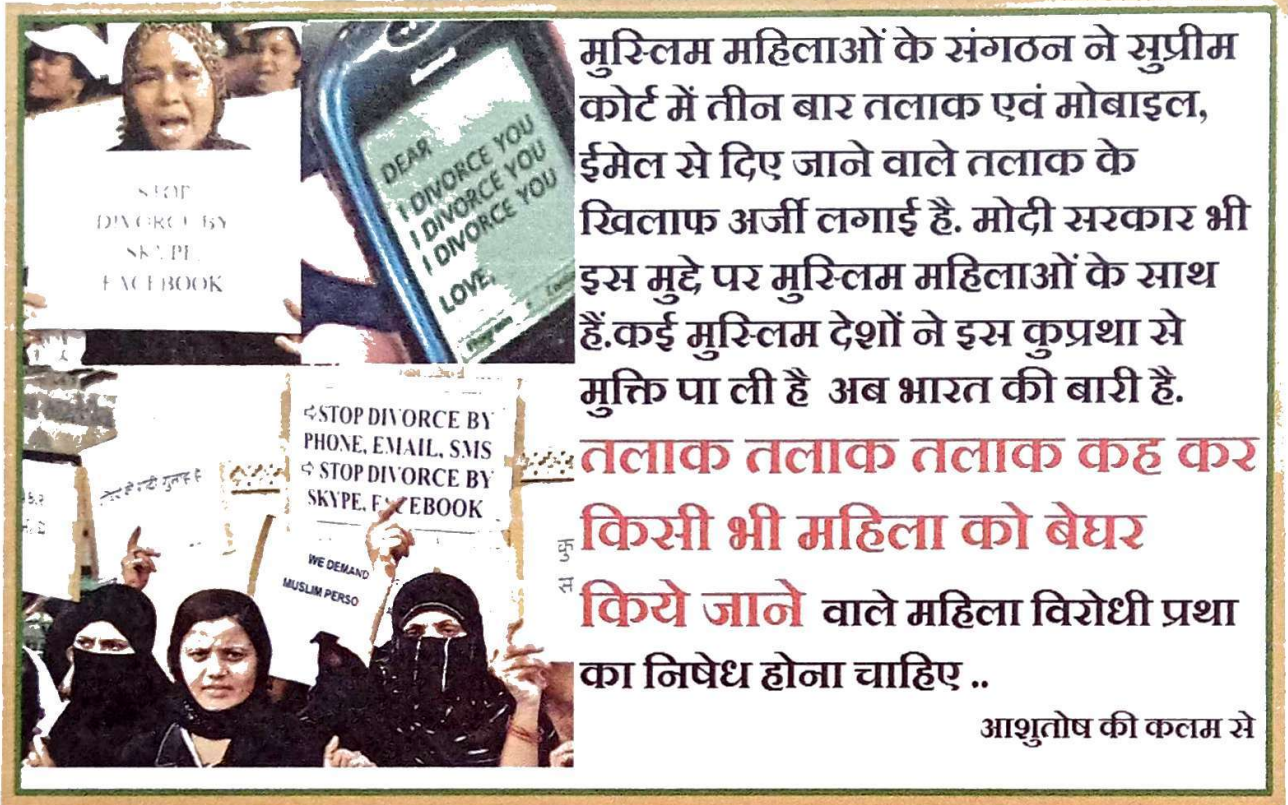 STOP
DIVORCE BY
SKYPE,
FACEBOOK
DEAR
I DIVORCE YOU
I DIVORCE YOU
I DIVORCE YOU
LOVE,
⇨STOP DIVORCE BY
PHONE, EMAIL, SMS
⇨ STOP DIVORCE BY
SKYPE, FACEBOOK
WE DEMAND
MUSLIM PERSO
कु
स
मुस्लिम महिलाओं के संगठन ने सुप्रीम
कोर्ट में तीन बार तलाक एवं मोबाइल,
ईमेल से दिए जाने वाले तलाक के
खिलाफ अर्जी लगाई है. मोदी सरकार भी
इस मुद्दे पर मुस्लिम महिलाओं के साथ
हैं.कई मुस्लिम देशों ने इस कुप्रथा से
मुक्ति पा ली है अब भारत की बारी है.
तलाक तलाक तलाक कह कर
किसी भी महिला को बेघर
किये जाने वाले महिला विरोधी प्रथा
का निषेध होना चाहिए ..
आशुतोष की कलम से